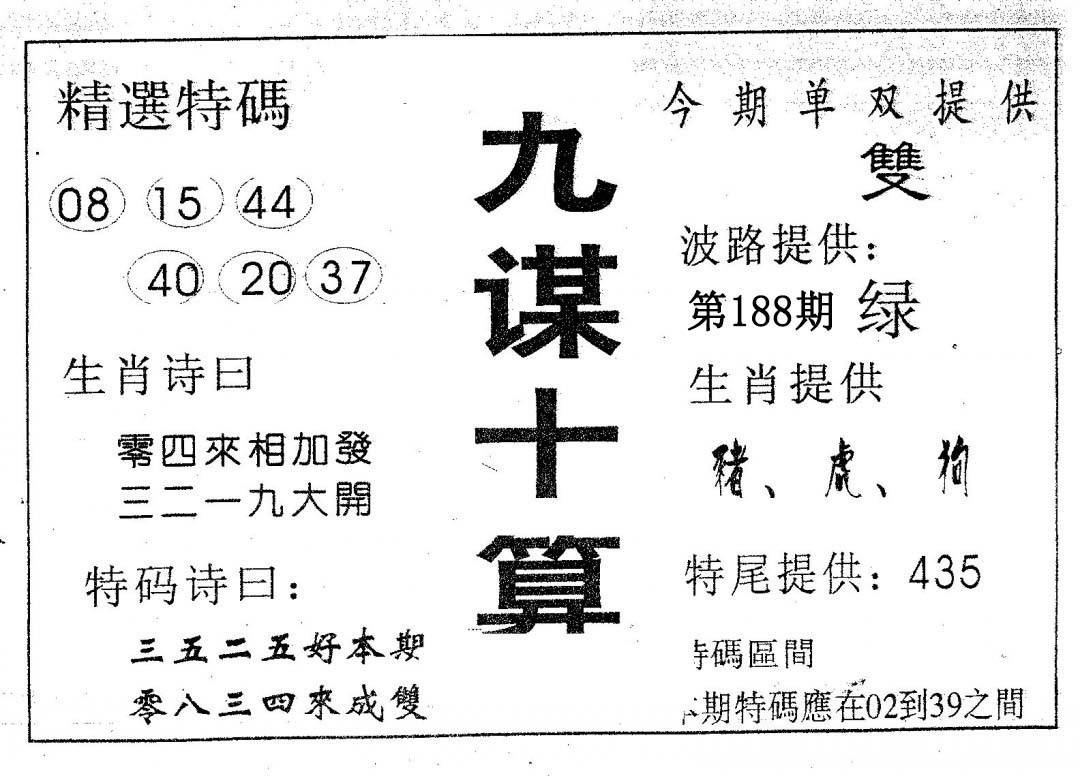 精選特碼
08 15 44
40 20 37
生肖诗曰
零四來相加發
三二一九大開
特码诗曰：
三五二五好本期
零八三四來成雙
九谋十算
今期单双提供
雙
波路提供：
第188期 绿
生肖提供
豬、虎、狗
特尾提供：435
特碼區間
期特碼應在02到39之間